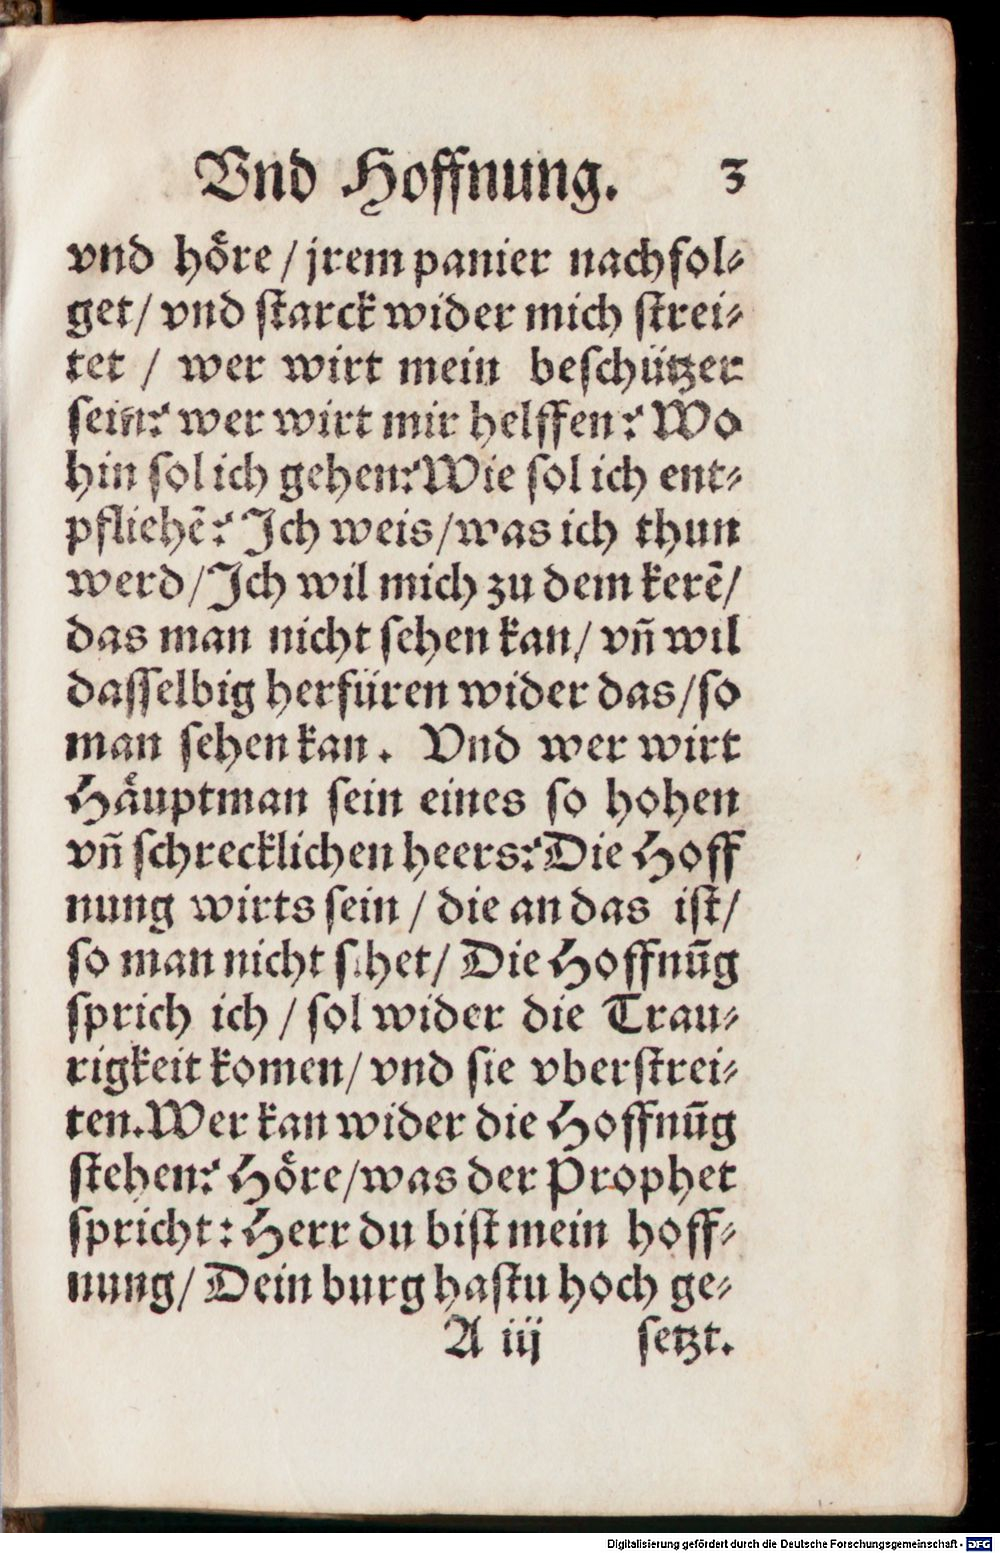 Vnd Hoffnung. 3
vnd hoͤre / jrem panier nachfol⸗
get / vnd ſtarck wider mich ſtrei⸗
tet / wer wirt mein beſchützer
ſein? wer wirt mir helffen? Wo
hin ſol ich gehen? Wie ſol ich ent⸗
pfliehẽ? Ich weis / was ich thun
werd / Ich wil mich zu dem kerẽ /
das man nicht ſehen kan / vñ wil
daſſelbig herfüren wider das / ſo
man ſehen kan. Vnd wer wirt
Haͤuptman ſein eines ſo hohen
vñ ſchrecklichen heers? Die Hoff
nung wirts ſein / die an das iſt /
ſo man nicht ſihet / Die Hoffnũg
ſprich ich / ſol wider die Trau⸗
rigkeit komen / vnd ſie vberſtrei⸗
ten. Wer kan wider die Hoffnũg
ſtehen? Hoͤre / was der Prophet
ſpricht: Herr du biſt mein hoff⸗
nung / Dein burg haſtu hoch ge⸗
A iij ſetzt.
Digitalisierung gefördert durch die Deutsche Forschungsgemeinschaft - DFG